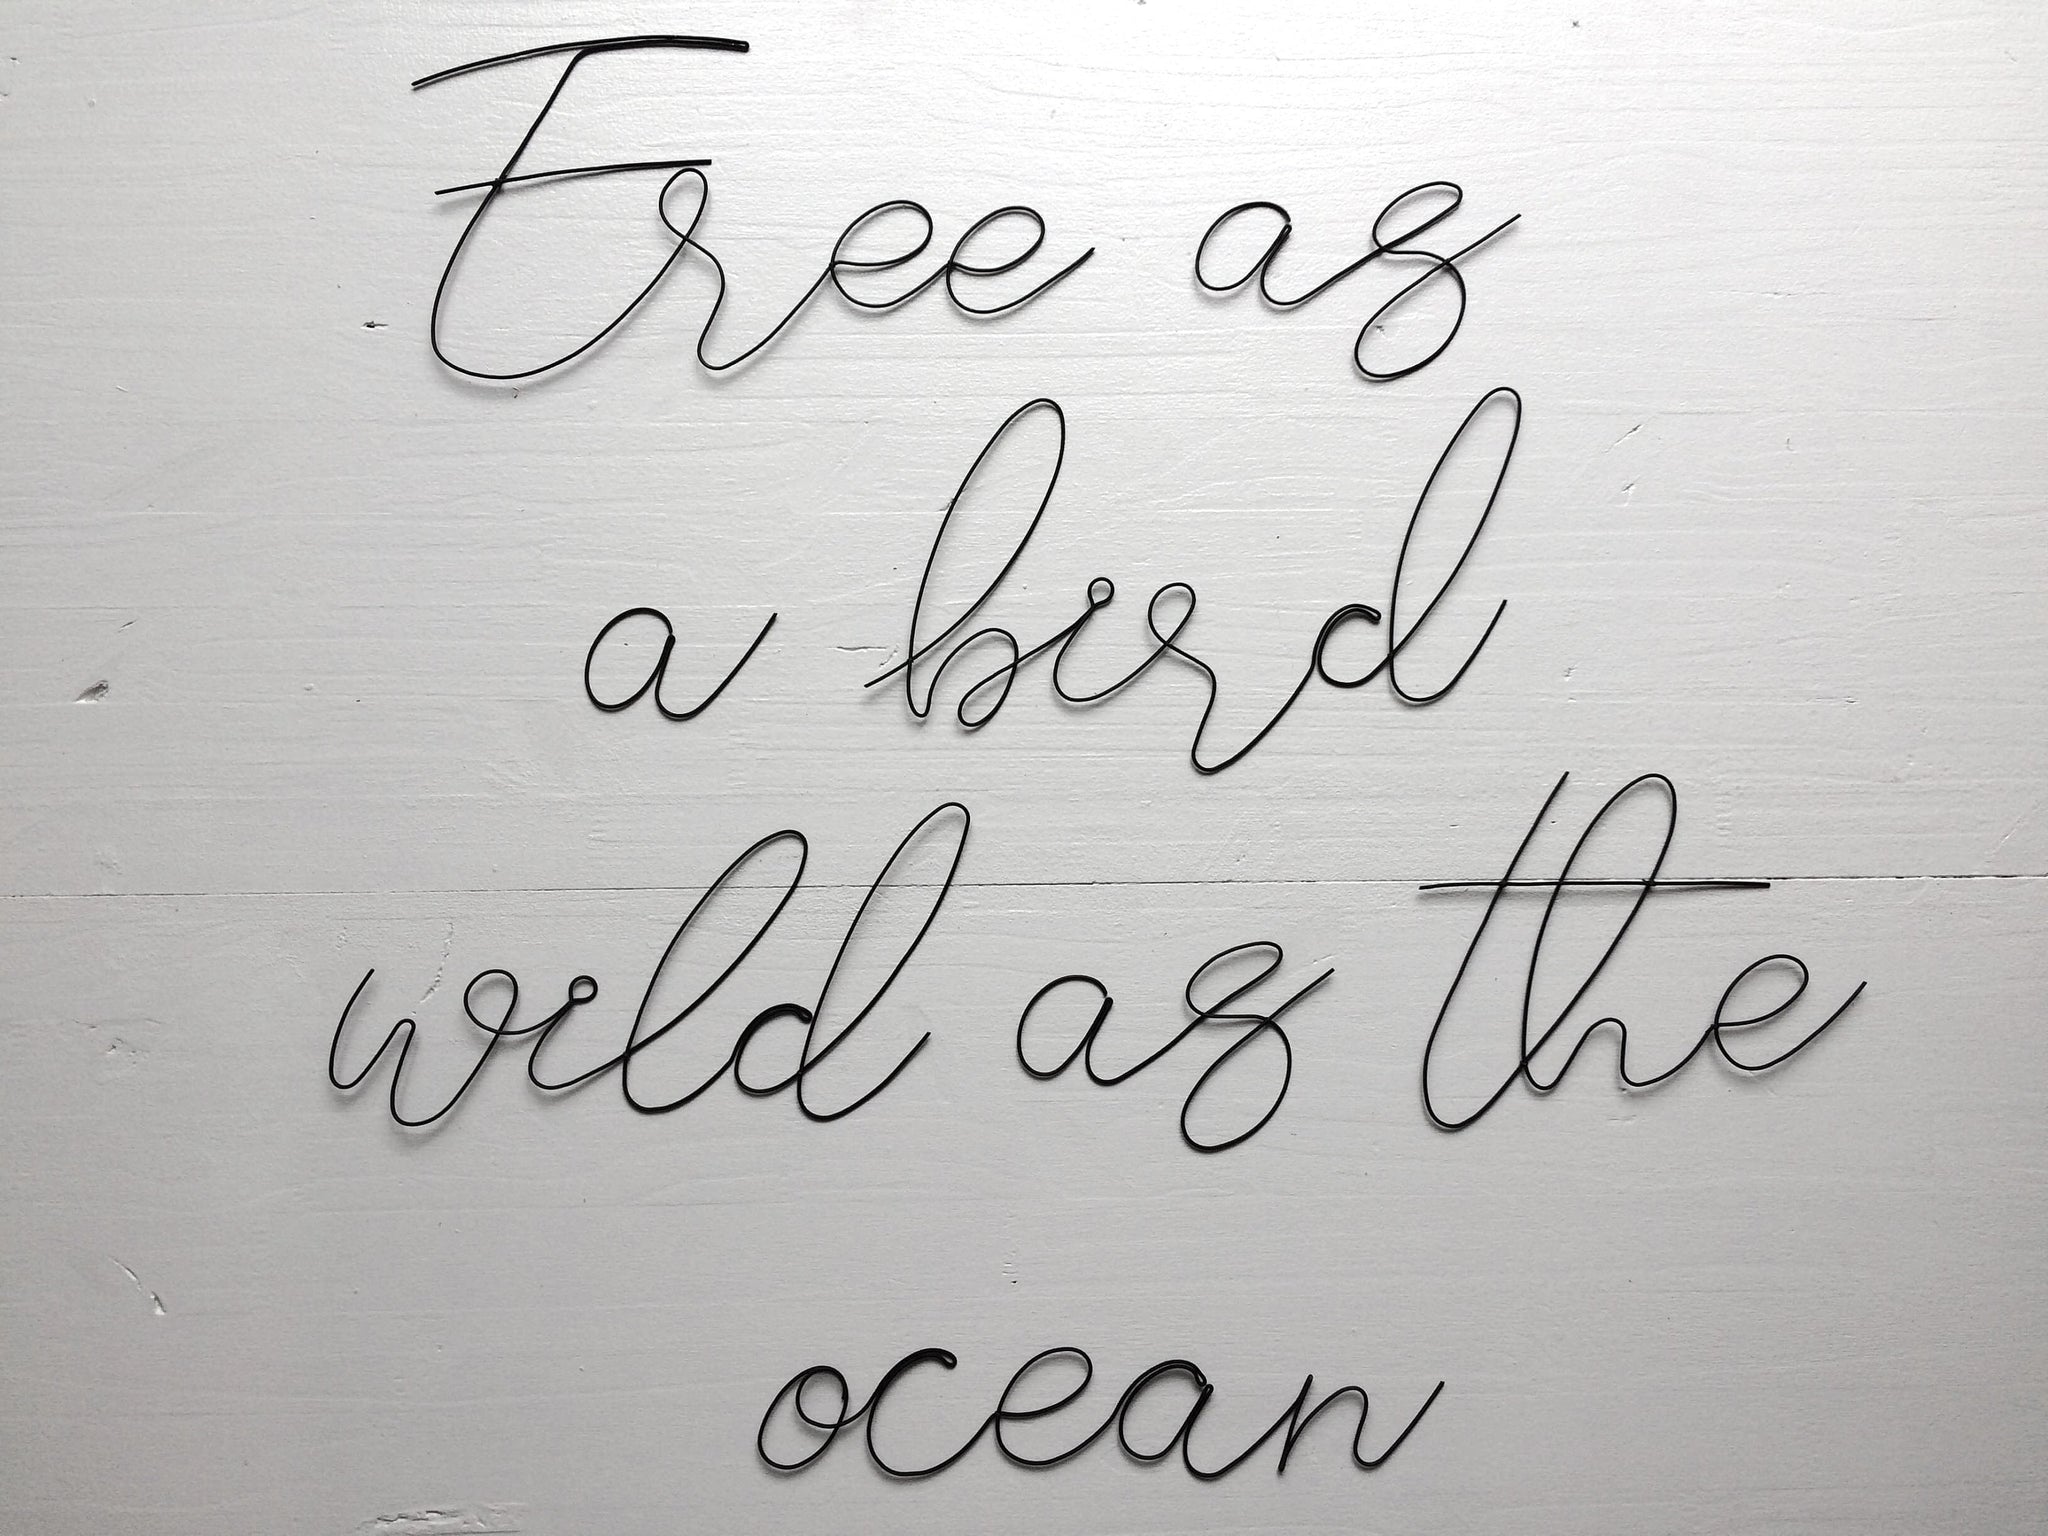 Free as
a bird
wild as the
ocean